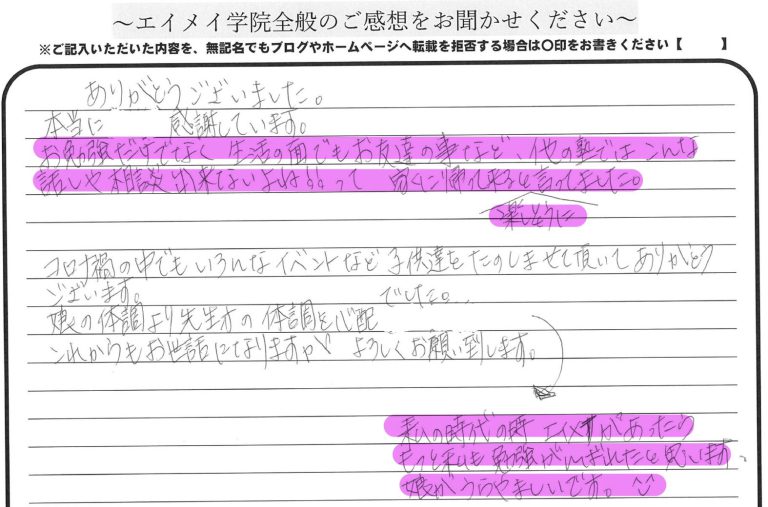 ～エイメイ学院全般のご感想をお聞かせください～
※ご記入いただいた内容を、無記名でもブログやホームページへ転載を拒否する場合は〇印をお書きください【　　】
ありがとうございました。
本当に　感謝しています。
お勉強だけでなく　生活の面でもお友達の事など、他の塾ではこんな
話しや相談出来ないよね!!って　家に帰って来ると言ってました。
楽しそうに
コロナ禍の中でもいろんなイベントなど子供達をたのしませて頂いてありがとう
ございます。
娘の体調より先生方の体調を心配　でした。…
これからもお世話になりますが　よろしくお願い致します。
私の時代の時　エイメイがあったら
もっと私も勉強がんばれたと思います。
娘がうらやましいです。